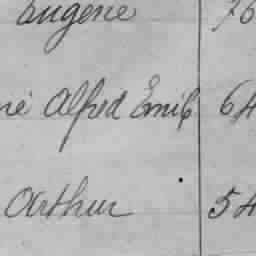 Eugene 76
né Alfred Emile 64
Arthur 54